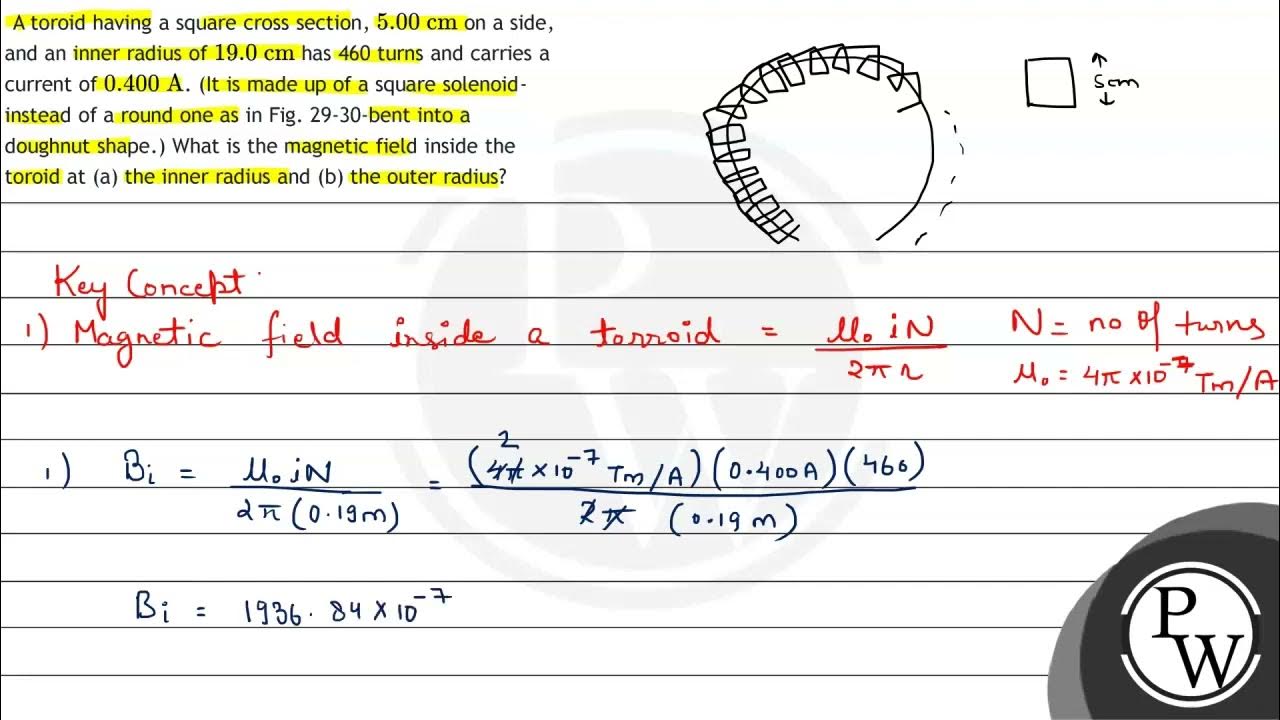 A toroid having a square cross section, 5.00 cm on a side,
and an inner radius of 19.0 cm has 460 turns and carries a
current of 0.400 A. (It is made up of a square solenoid-
instead of a round one as in Fig. 29-30-bent into a
doughnut shape.) What is the magnetic field inside the
toroid at (a) the inner radius and (b) the outer radius?
5cm
Key Concept
1) Magnetic field inside a torroid = μ₀iN / 2πr
N = no of turns
μ₀ = 4π×10⁻⁷ Tm/A
1) Bi = μ₀iN / 2π(0.19m) = (4π×10⁻⁷ Tm/A)(0.400A)(460) / 2π (0.19m)
2
Bi = 1936.84×10⁻⁷
PW
PW